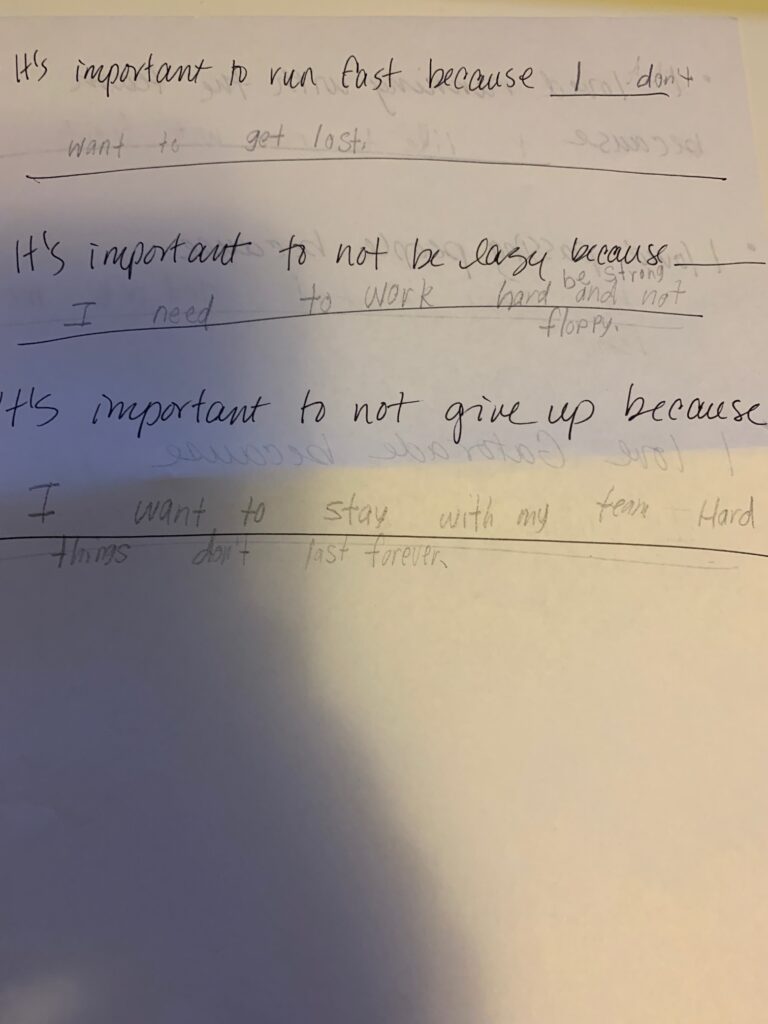 It's important to run fast because I don't
want to get lost.
It's important to not be lazy because
be strong
I need to work hard and not
floppy.
It's important to not give up because
I love Gatorade because
I want to stay with my team Hard
things don't last forever.